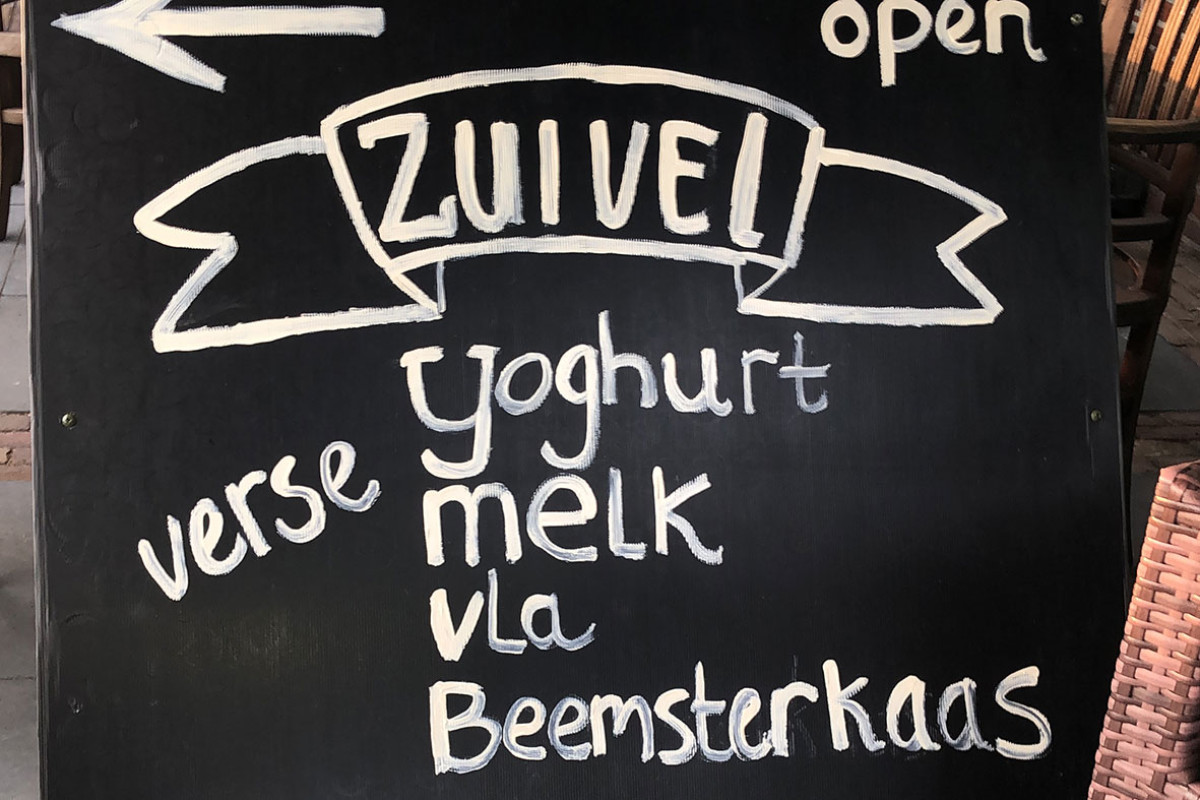 open
ZUIVEL
yoghurt
verse melk
vla
Beemsterkaas